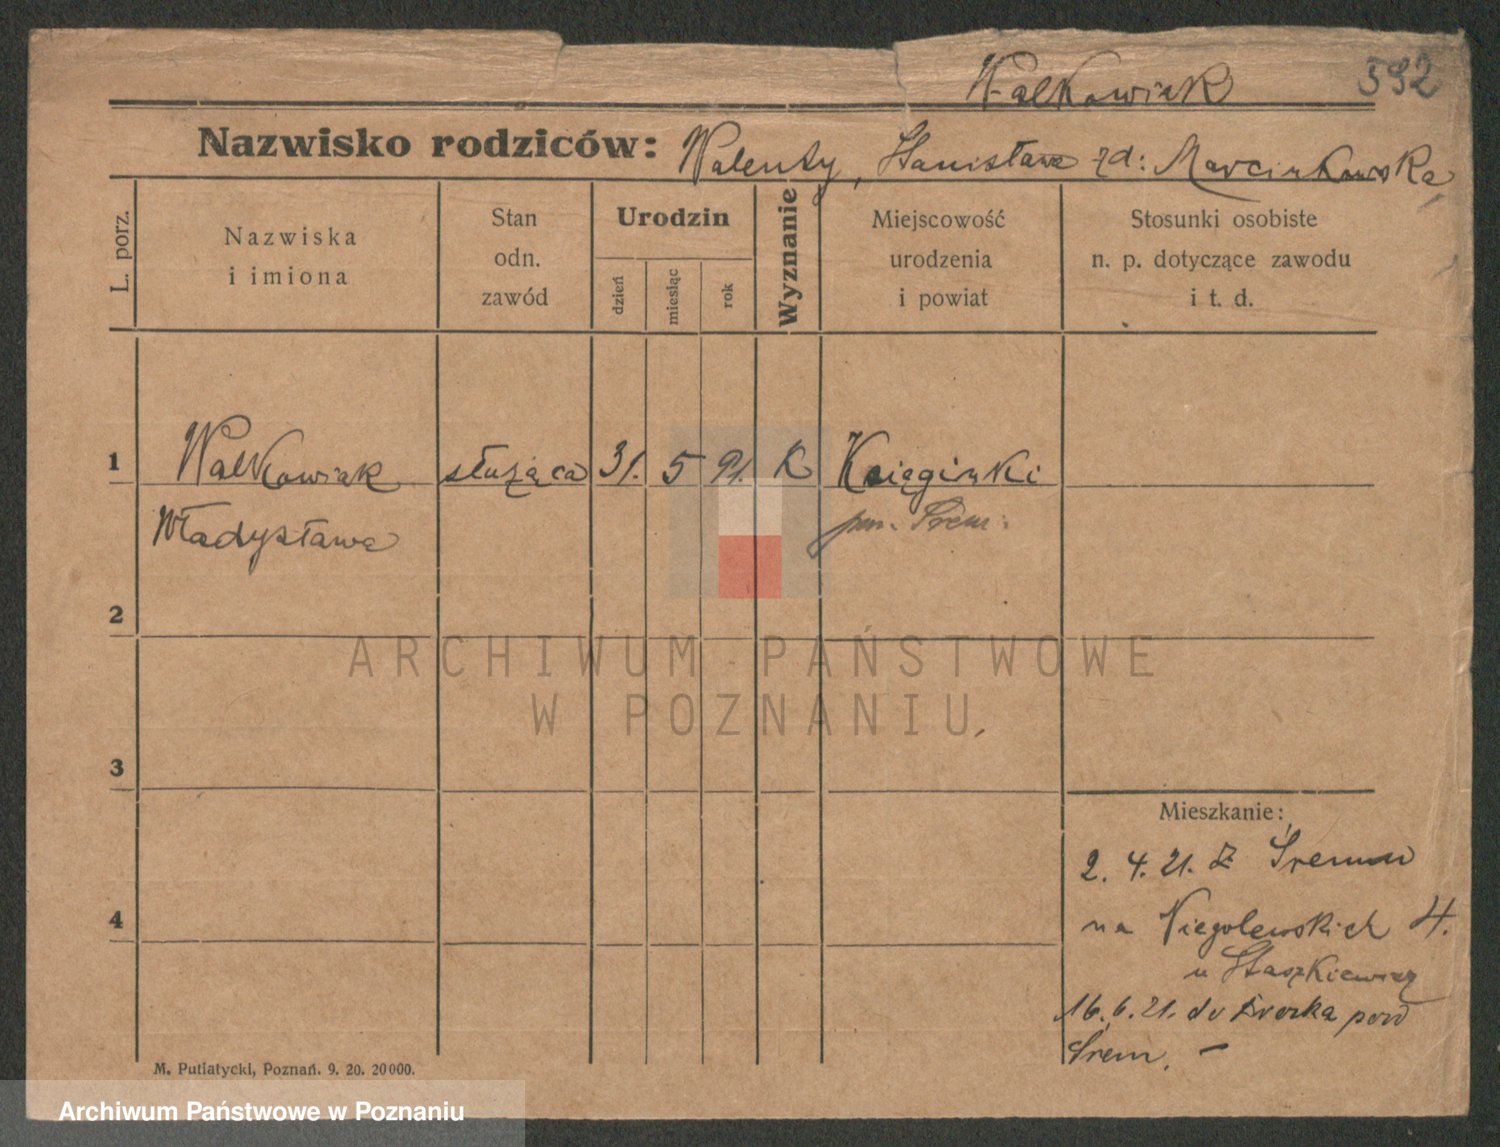 Walkowiak 592
Nazwisko rodziców: Walenty, Stanisława zd: Marcinkowska
L. porz.
Nazwiska
i imiona
Stan
odn.
zawód
Urodzin
dzień
miesiąc
rok
Wyznanie
Miejscowość
urodzenia
i powiat
Stosunki osobiste
n. p. dotyczące zawodu
i t. d.
1 Walkowiak służąca 31. 5 91. K Książinki
Władysława pow. Śrem.
2
ARCHIWUM PAŃSTWOWE
W POZNANIU
3
Mieszkanie:
2. 4. 21. z Śremu
4 na Niegolewskich 4.
u Staszkiewicz
16. 6. 21. do pow
Śrem. –
M. Putiatycki, Poznań. 9. 20. 20000.
Archiwum Państwowe w Poznaniu